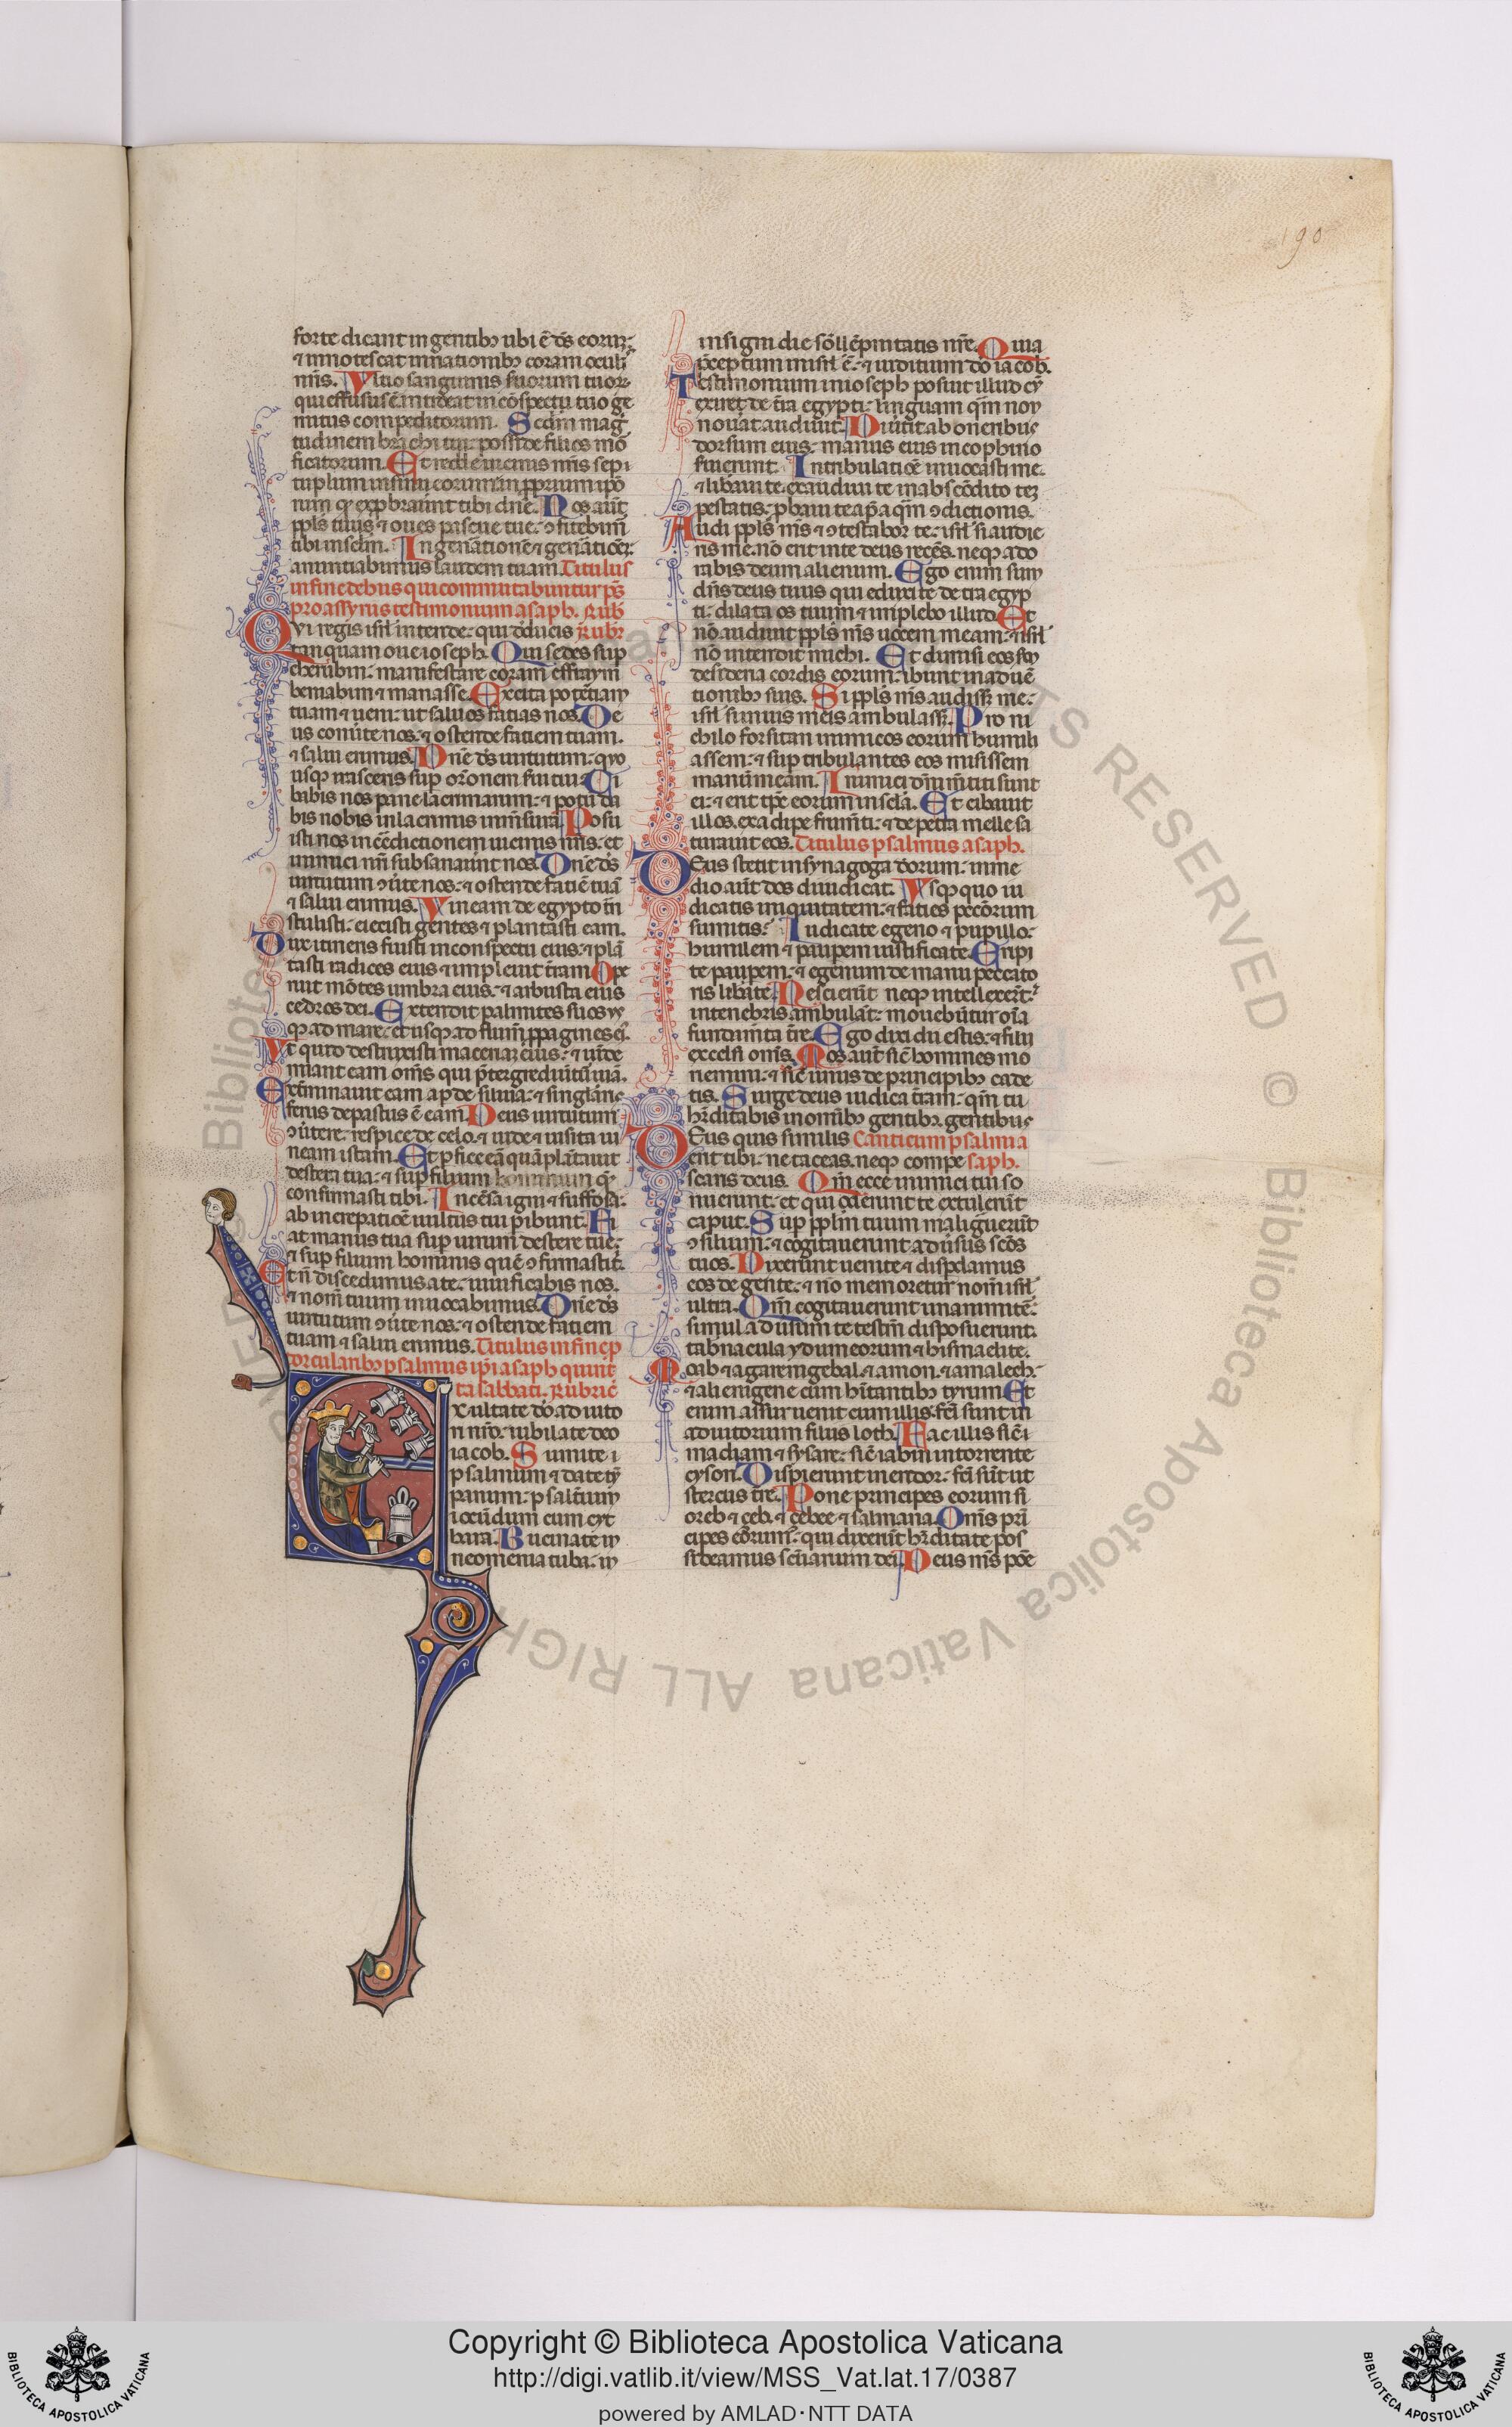 190
forte dicant in gentibꝫ ubi ē ds̄ eorum
⁊ innotescat in nationibꝫ coram oculis
nr̄is. Vltio sanguinis suorum tuorꝫ
qui effusus ē intreat in cōspectu tuo ge
mitus compeditorum. Scdm̄ mag
tudinem brachi tui: posside filios mō
ficatorum. Et redde uicinis nr̄is sep
tuplum in sinu eorum
rum qͥ exp̄braurunt tibi dn̄e. Nos aūt
ppls̄ tuus ⁊ oues pascue tue: ꝯfitebimr̄
tibi in sclm̄. In gen̄ationē ⁊ gen̄ationē
anuntiabimus laudem tuam. Titulus
in finē de hiis qui commutabuntur ps̄
pro assyriis testimonium asaph. Rub̄
Qui regis isr̄l intende: qui dēducis Rub̄r
tanquam oue ioseph. Qui sedes sup
cherubin: manifestare coram effraym
beniamin ⁊ manasse. Excita potētiam
tuam ⁊ ueni: ut saluos fatias nos. De
us conūte nos: ⁊ ostende fatiem tuam.
⁊ salui erimus. Dn̄e ds̄ uirtutum: quo
usqꝫ irasceris sup or̄onem fui tui: Ci
babis nos pane lacrimarum: ⁊ potū da
bis nobis in lacrimis in mēsura. Posu
isti nos in cōtradictionem uicinis nr̄is: et
inimici nr̄i subsanauurnt nos. Dn̄e ds̄
uirtutum ꝯūte nos: ⁊ ostende fatiē tuā
⁊ salui erimus. Vineam de egypto t̄n
stulisti: eiecisti gentes ⁊ plantasti eam.
Dux itineris fuisti in conspectu eius: ⁊ plā
tasti radices eius ⁊ impleuit t̄ram. Ope
ruit mōtes umbra eius: ⁊ arbusta eius
cedros dei. Extendit palmites suos us
qꝫ ad mare: et usqꝫ ad flum̄ ppagines eiꝰ.
Vt quid destruxisti maceriaꝫ eius: ⁊ uīde
miant eam om̄s qui p̄tergrediuntur uiā.
Exterminauit eam aper de silua: ⁊ singularis
ferus depastus ē eam. Deus uirtutum
ꝯūtere: respice de celo: ⁊ uide ⁊ uisita ui
neam istam. Et ꝑfice eā quā plātauit
destera tua: ⁊ sup filium hominum qͥ
confirmasti tibi. Incēsa igni ⁊ suffosa:
ab increpatiōe uultus tui ꝑibunt. Fi
at manus tua sup uirum destere tue:
⁊ sup filium hominis quē ꝯfirmasti t̄
Et n̄ discedimus a te: uiuificabis nos.
⁊ nom̄ tuum inuocabimus. Dn̄e ds̄
uirtutum ꝯūte nos: ⁊ ostende fatiem
tuam ⁊ salui erimus. Titulus in finē p
torcularibꝫ psalmus ipi asaph quint
ta sabbati. Rubric̄
Exultate dō adiuto
ri nr̄o: iubilate deo
iacob. Sumite
psalmum ⁊ date tym
panum: psalterium
iocundum cum cyt
hara. Bucinate in
neomenia tuba: in
insigni die sōllēpnitatis nr̄e. Quia
p̄ceptum in isr̄l ē: ⁊ iuditium dō iacob.
Testimonium in ioseph posuit illud cū
exiret de t̄ra egypti: linguam qm̄ non
nouerat audiuit. Diūtit ab oneribus
dorsum eius: manus eius in cophino
fuierunt. In tribulatiōe inuocasti me
⁊ libaui te: exaudiui te in abscōdito teꝫ
pestatis: ꝓbaui te ap̄ aqm̄ ꝯdictionis.
Audi ppls̄ m̄s ⁊ ꝯtestabor te: isr̄l si audie
ris me: nō erit in te deus recēs. neqꝫ ado
rabis deum alienum. Ego enim sum
dn̄s deus tuus qui eduxi te de tra egyp
ti: dilata os tuum ⁊ implebo illud. Et
nō audiunt ppls̄ m̄s uocem meam: ⁊ isr̄l
nō intendit michi. Et dimisi eos scdm
desideria cordis eorum: ibunt in aduē
tionibꝫ suis. Si ppls̄ m̄s audisset me:
isr̄l si in uiis meis ambulasset. Pro ni
chilo forsitan inimicos eorum humili
assem: ⁊ sup tribulantes eos misissem
manū meam. Inimici dn̄i m̄titi sunt
ei: ⁊ erit tp̄e eorum in scl̄a. Et cibauit
illos. ex adipe frumti: ⁊ de petra melle sa
turauit eos. Titulus psalmus asaph.
Deus stetit in synagoga deorum: in me
dio aūt deos diiudicat. Vsqꝫ quo iu
dicatis iniquitatem: ⁊ faties peccōrum
sumitis: Iudicate egeno ⁊ pupillo:
humilem ⁊ pauꝑem iustificate. Eripi
te pauꝑem: ⁊ egenum de manu peccato
ris liberate. Nescierūt neqꝫ intellexerūt:
in tenebris ambulāt: mouebūtur oīa
fundamta t̄re. Ego dixi dii estis: ⁊ filii
excelsi om̄s. Uos aūt sic̄ homines mo
riemini: ⁊ sic̄ unus de principibꝫ cade
tis. Surge deus iudica t̄ram: qm̄ tu
hr̄ditabis in om̄ibꝫ gentibꝫ. gentibus
Deus quis similis Canticum psalmi a
erit tibi: ne taceas. neqꝫ compe saph.
scaris deus. Qm̄ ecce inimici tui so
nuerunt: et qui oderunt te extulerūt
caput. Sup pplm̄ tuum maliguerūt
ꝯsilium: ⁊ cogitauerunt aduersus scōs
tuos. Dixerunt uenite ⁊ dispdamus
eos de gente: ⁊ nō memoretur nom̄ isr̄l
ultra. Qm̄ cogitauerunt unanimitē:
simul aduersum te testm̄ disposuerunt:
tabnacula ydumeorum ⁊ hismaelite.
Moab ⁊ agareni gebal. ⁊ amon. ⁊ amalech:
⁊ alienigene cum hītantibꝫ tyrum. Et
enim assur uenit cum illis: fcī sunt in
adiutorium filiis loth. Fac illis sic̄
madiam ⁊ sysare: sic̄ iabin in torrente
cyson. Dispierunt in endor: fcī sūt ut
stercus t̄re. Pone principes eorum si
oreb ⁊ ceb. ⁊ cebee ⁊ salmana. Omīs prī
cipes eorum: qui dixerūt hr̄ditate pos
sideamus sctuarium dei. Deus m̄s pōe
Copyright © Biblioteca Apostolica Vaticana
http://digi.vatlib.it/view/MSS_Vat.lat.17/0387
powered by AMLAD·NTT DATA
BIBLIOTECA APOSTOLICA VATICANA
BIBLIOTECA APOSTOLICA VATICANA